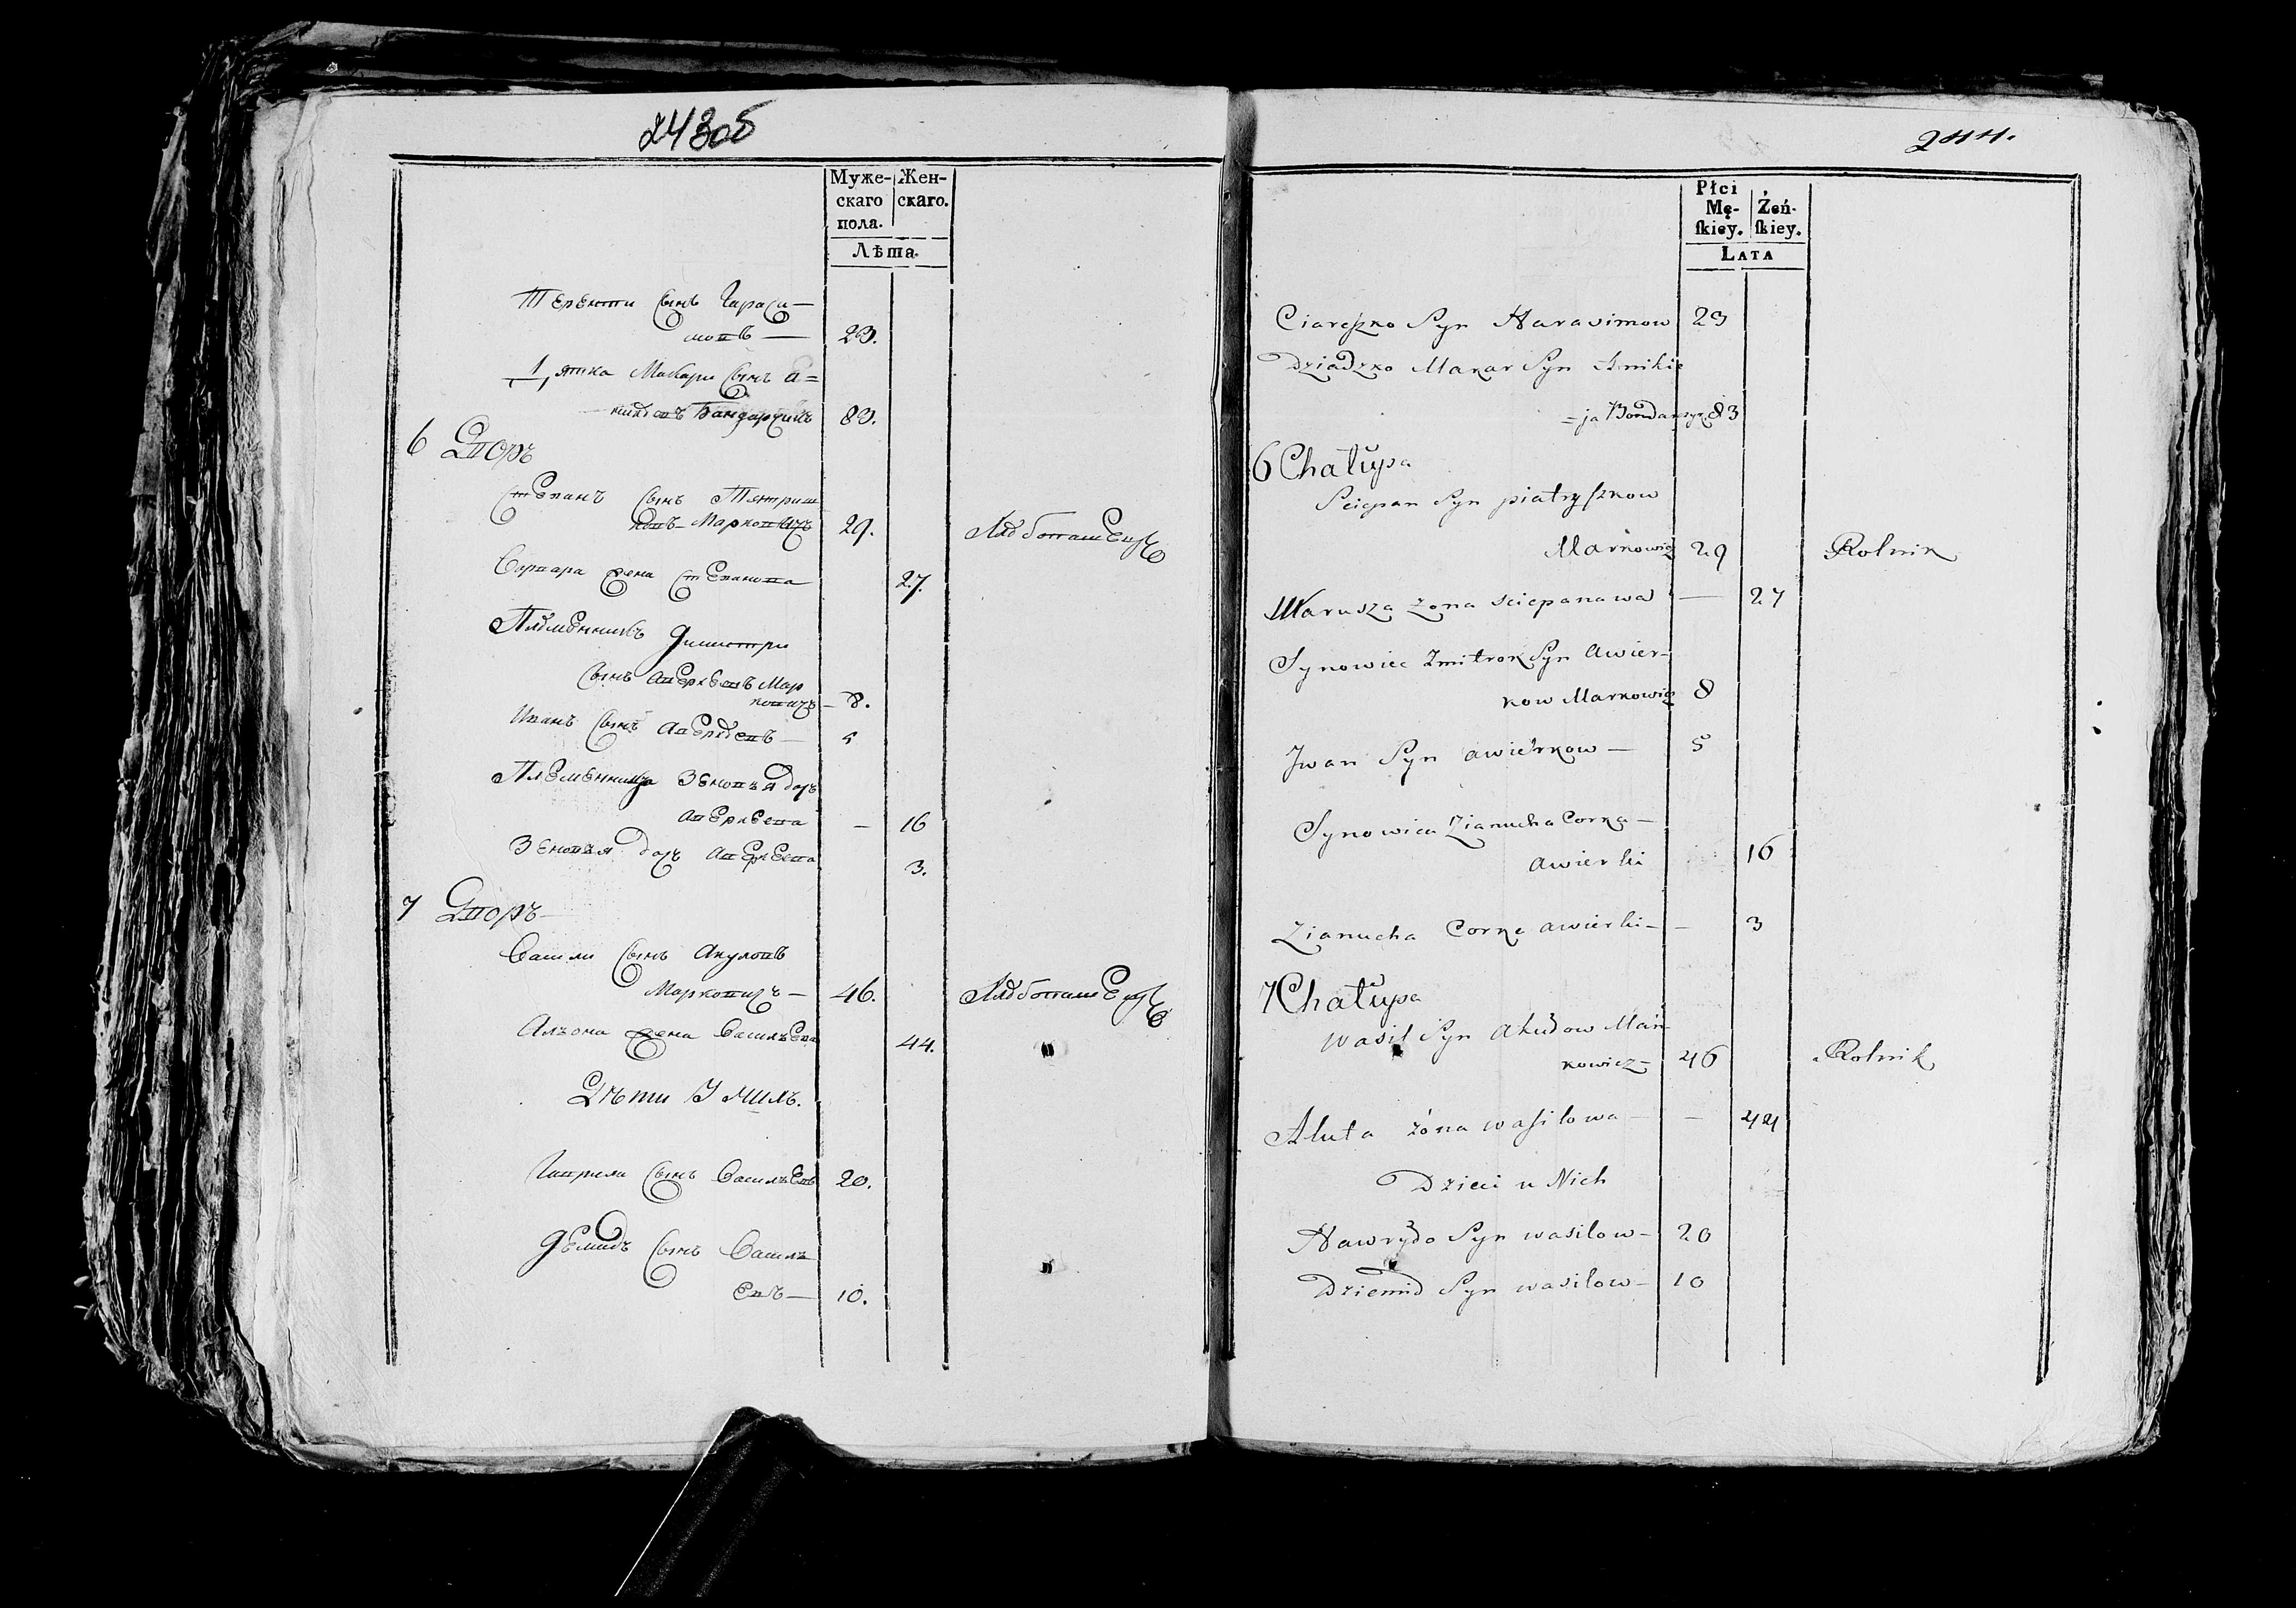 243об
Муже-
скаго
пола.
Жен-
скаго.
Лѣта.
Терентти сынъ Гараси-
мовъ — 23.
Макари сынъ а=
Бандарчикъ 83.
6 Дворъ
Степанъ сынъ Петриш
ковъ Марковичъ 29.
Варвара жена Степанова 27.
Племенникъ Димитри
сынъ аверкевъ Мар
ковичъ — 8.
Иванъ сынъ — 5
Племенница Зеновья дочъ
аверкева — 16
Зеновья дочъ аверкева 3.
7 Дворъ
Васили сынъ Акуловъ
Марковичъ — 46.
Алъона жена Василъева 44.
Дѣти У нихъ.
Гаврила сынъ Василъевъ 20.
Демидъ сынъ Василъ
евъ — 10.
244.
Płci
Mę-
ſkiey.
Żeń-
ſkiey.
LATA
Ciareszko Syn Harasimow 23
Dziadzko Makar Syn Anikie
=ja Bondarczyk 83
6 Chałupa
Sciepan Syn piatryszkow
Markowicz 29 Rolnik
Marusza żona sciepanawa — 27
Synowiec Zmitrok Syn Awier-
kow Markowicz 8
Jwan Syn awierkow — 5
Synowica Zianucha Corka —
awierki 16
Zianucha Corka awierki — 3
7 Chałupa
Wasil Syn Akułow Mar-
kowicz 46 Rolnik
Aluta żona wasilowa — 44
Dzieci u Nich
Hawryło Syn wasilow — 20
Dziemid Syn wasilow — 10